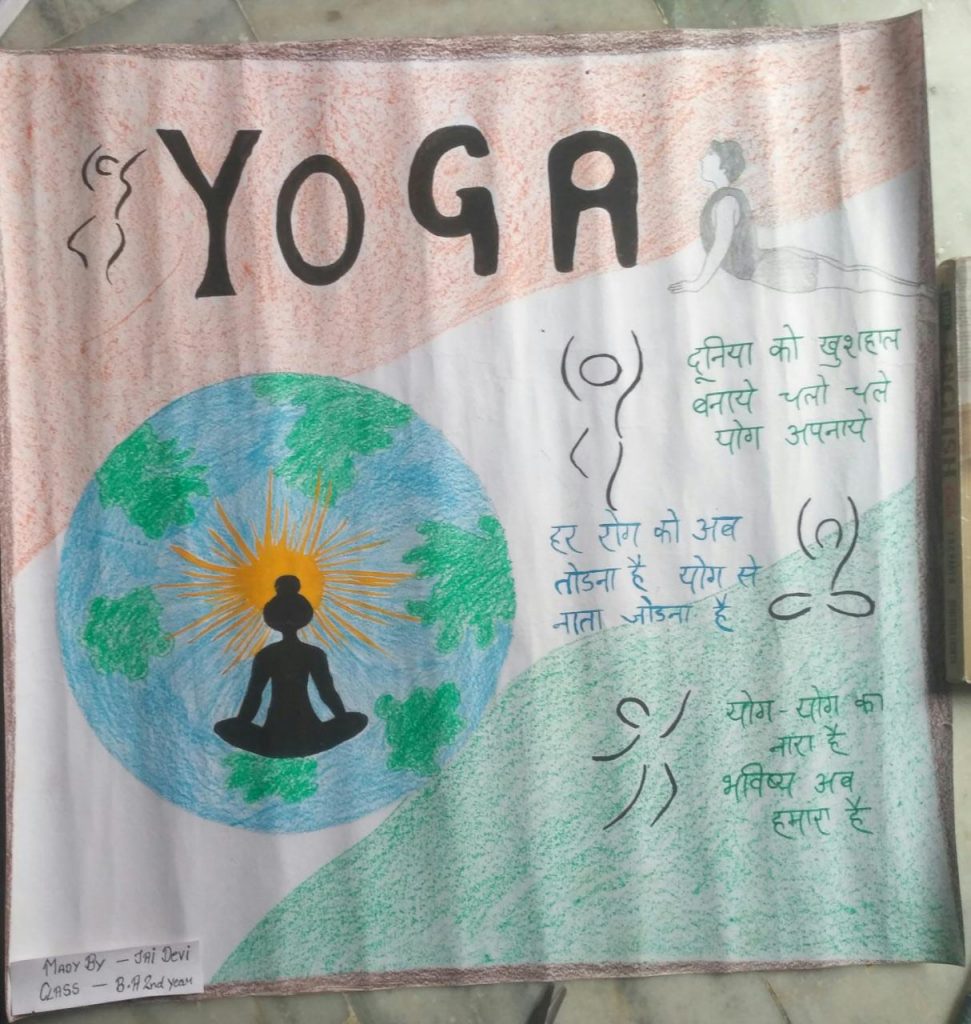 YOGA
दूनिया को खुशहाल
बनाये चलो चले
योग अपनाये
हर रोग को अब
तोडना है योग से
नाता जोडना है
योग-योग का
नारा है
भविष्य अब
हमारा है
MADY BY — JAI DEVI
CLASS — B.A 2nd year
ENGLISH